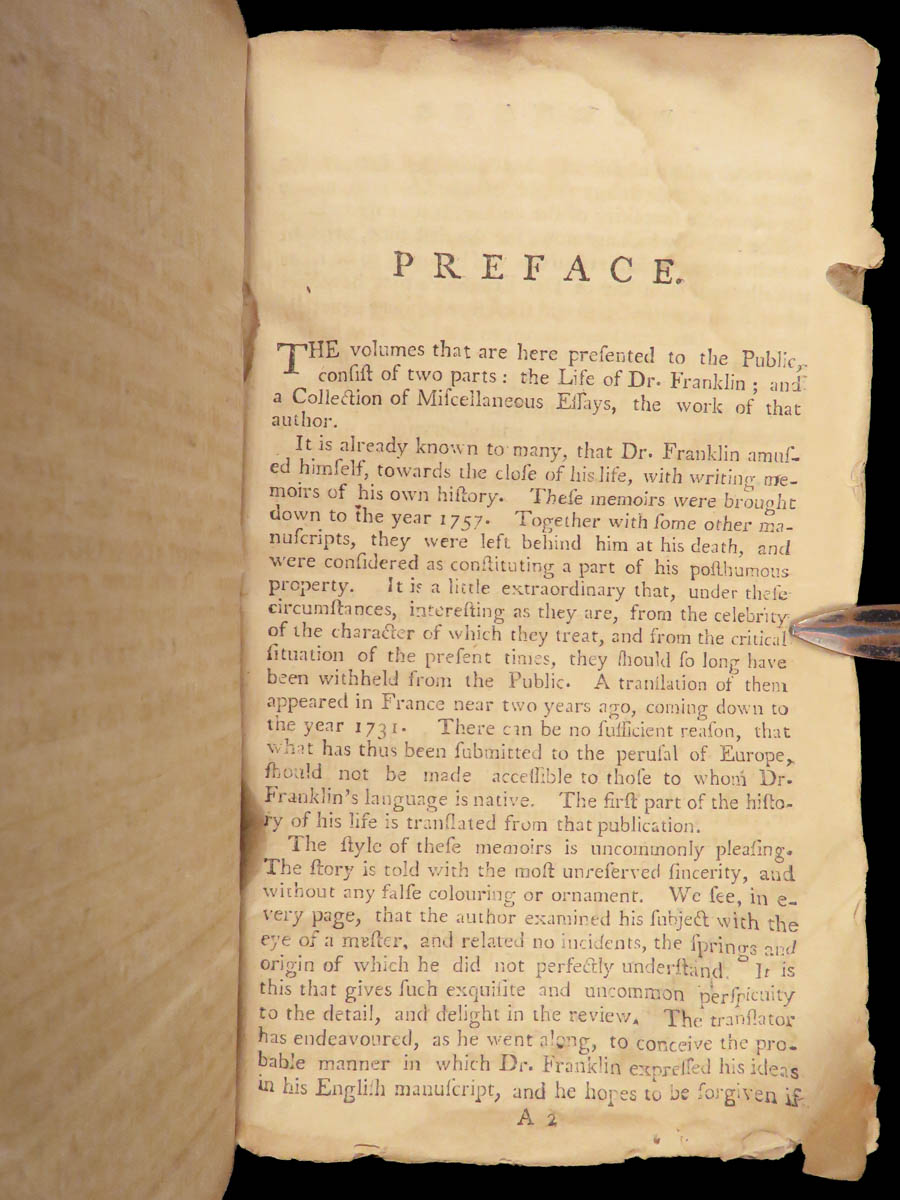 PREFACE.
THE volumes that are here preſented to the Public,
conſiſt of two parts: the Life of Dr. Franklin; and
a Collection of Miſcellaneous Eſſays, the work of that
author.
It is already known to many, that Dr. Franklin amuſ-
ed himſelf, towards the cloſe of his life, with writing me-
moirs of his own hiſtory. Theſe memoirs were brought
down to the year 1757. Together with ſome other ma-
nuſcripts, they were left behind him at his death, and
were conſidered as conſtituting a part of his poſthumous
property. It is a little extraordinary that, under theſe
circumſtances, intereſting as they are, from the celebrity
of the character of which they treat, and from the critical
ſituation of the preſent times, they ſhould ſo long have
been withheld from the Public. A tranſlation of them
appeared in France near two years ago, coming down to
the year 1731. There can be no ſufficient reaſon, that
what has thus been ſubmitted to the peruſal of Europe,
ſhould not be made acceſſible to thoſe to whom Dr.
Franklin's language is native. The firſt part of the hiſto-
ry of his life is tranſlated from that publication.
The ſtyle of theſe memoirs is uncommonly pleaſing.
The ſtory is told with the moſt unreſerved ſincerity, and
without any falſe colouring or ornament. We ſee, in e-
very page, that the author examined his ſubject with the
eye of a maſter, and related no incidents, the ſprings and
origin of which he did not perfectly underſtand. It is
this that gives ſuch exquiſite and uncommon perſpicuity
to the detail, and delight in the review. The tranſlator
has endeavoured, as he went along, to conceive the pro-
bable manner in which Dr. Franklin expreſſed his ideas
in his Engliſh manuſcript, and he hopes to be forgiven if
A 2